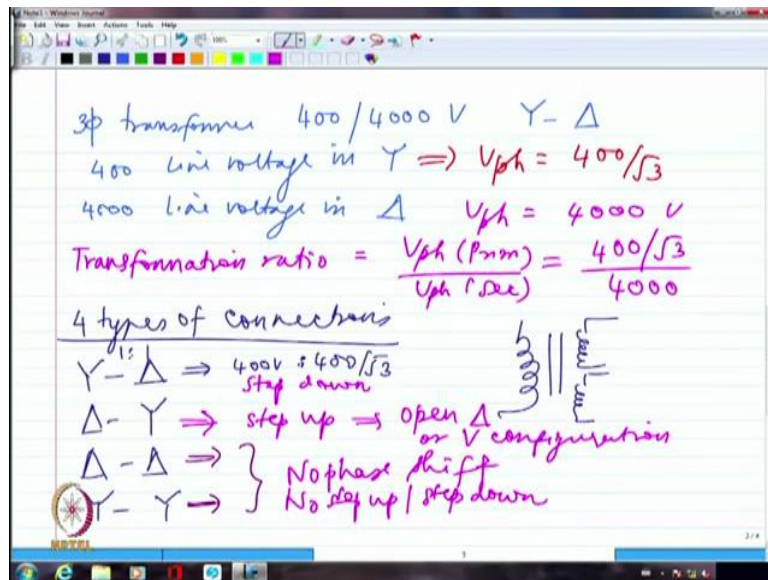 Note1 - Windows Journal
File Edit View Insert Actions Tools Help
100%
3φ transformer 400/4000 V Y - Δ
400 line voltage in Y ⇒ Vph = 400/√3
4000 line voltage in Δ Vph = 4000 V
Transformation ratio = Vph (Prim) / Vph (Sec) = 400/√3 / 4000
4 types of connections
1:1
Y - Δ ⇒ 400V : 400/√3
step down
Δ - Y ⇒ step up ⇒ open Δ
or V configuration
Δ - Δ ⇒ } No phase shift
Y - Y → } No step up / step down
NPTEL
3/4